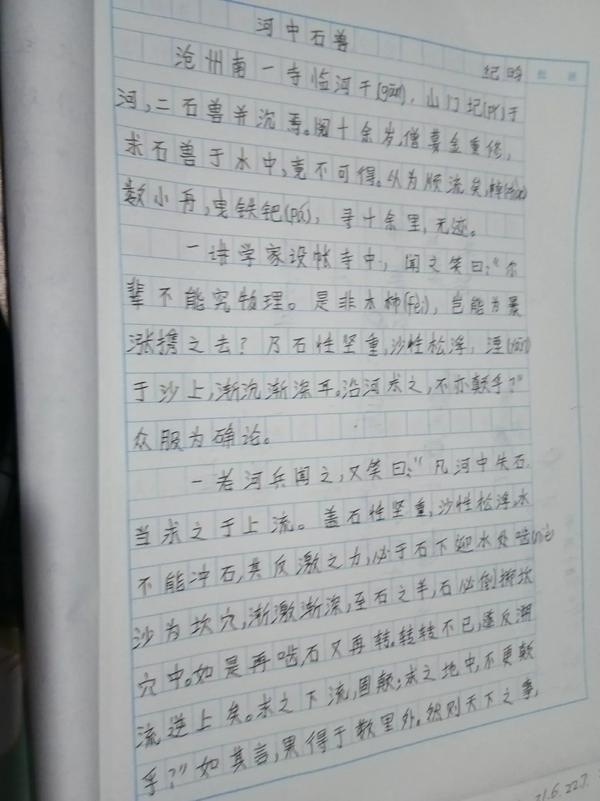 河中石兽
纪昀
沧州南一寺临河干(gān),山门圮(pǐ)于
河,二石兽并沉焉。阅十余岁,僧募金重修,
求石兽于水中,竟不可得。以为顺流矣,棹(zhào)
数小舟,曳铁钯(pá),寻十余里,无迹。
一讲学家设帐寺中,闻之笑曰:"尔
辈不能究物理。是非木杮(fèi),岂能为暴
涨携之去?乃石性坚重,沙性松浮,湮(yān)
于沙上,渐沉渐深耳。沿河求之,不亦颠乎?"
众服为确论。
一老河兵闻之,又笑曰:"凡河中失石,
当求之于上流。盖石性坚重,沙性松浮,水
不能冲石,其反激之力,必于石下迎水处啮(niè)
沙为坎穴,渐激渐深,至石之半,石必倒掷坎
穴中。如是再啮,石又再转。转转不已,遂反溯
流逆上矣。求之下流,固颠;求之地中,不更颠
乎?"如其言,果得于数里外。然则天下之事,
21.6.22